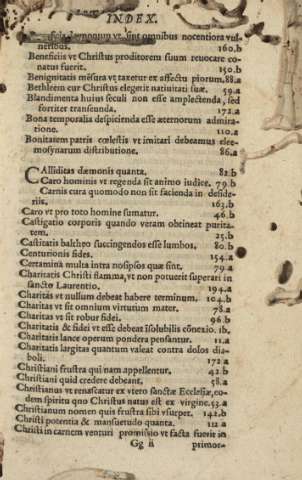 INDEX.
dæmonum vt sint omnibus nocentiora vul-
neribus. 160.b
Beneficiis vt Christus proditorem suum reuocare co-
natus fuerit. 150.b
Benignitatis mẽsura vt taxetur ex affectu piorum. 88.a
Bethleem cur Christus elegerit natiuitati suæ. 59.a
Blandimenta huius seculi non esse amplectenda, sed
fortiter transeunda. 172.a
Bona temporalia despicienda esse æternorum admira-
tione. 110.a
Bonitatem patris cœlestis vt imitari debeamus elee-
mosynarum distributione. 86.a
CAlliditas dæmonis quanta. 82.b
Caro hominis vt regenda sit animo iudice. 79.b
Carnis cura quomodo non sit facienda in deside-
riis. 163.b
Caro vt pro toto homine sumatur. 46.b
Castigatio corporis quando veram obtineat purita-
tem. 25.b
Castitatis baltheo succingendos esse lumbos. 80.b
Centurionis fides. 154.a
Certamina multa intra nosipsos quæ sint. 79.a
Charitatis Christi flamma, vt non potuerit superari in
sancto Laurentio. 194.a
Charitas vt nullum debeat habere terminum. 104.b
Charitas vt sit omnium virtutum mater. 78.a
Charitas vt sit robur fidei. 96.b
Charitatis & fidei vt esse debeat īsolubilis cõnexio. ib.
Charitatis lance operum pondera pensantur. 11.a
Charitatis largitas quantum valeat contra dolos dia-
boli. 172.a
Christiani frustra qui nam appellentur. 42.b
Christiani quid credere debeant. 58.a
Christianus vt renascatur ex vtero sanctæ Ecclesiæ, eo-
dem spiritu quo Christus natus est ex virgine. 53.a
Christianum nomen quis frustra sibi vsurpet. 142.b
Christi potentia & mansuetudo quanta. 112 a
Christi in carnem venturi promissio vt facta fuerit in
Gg ii primor-